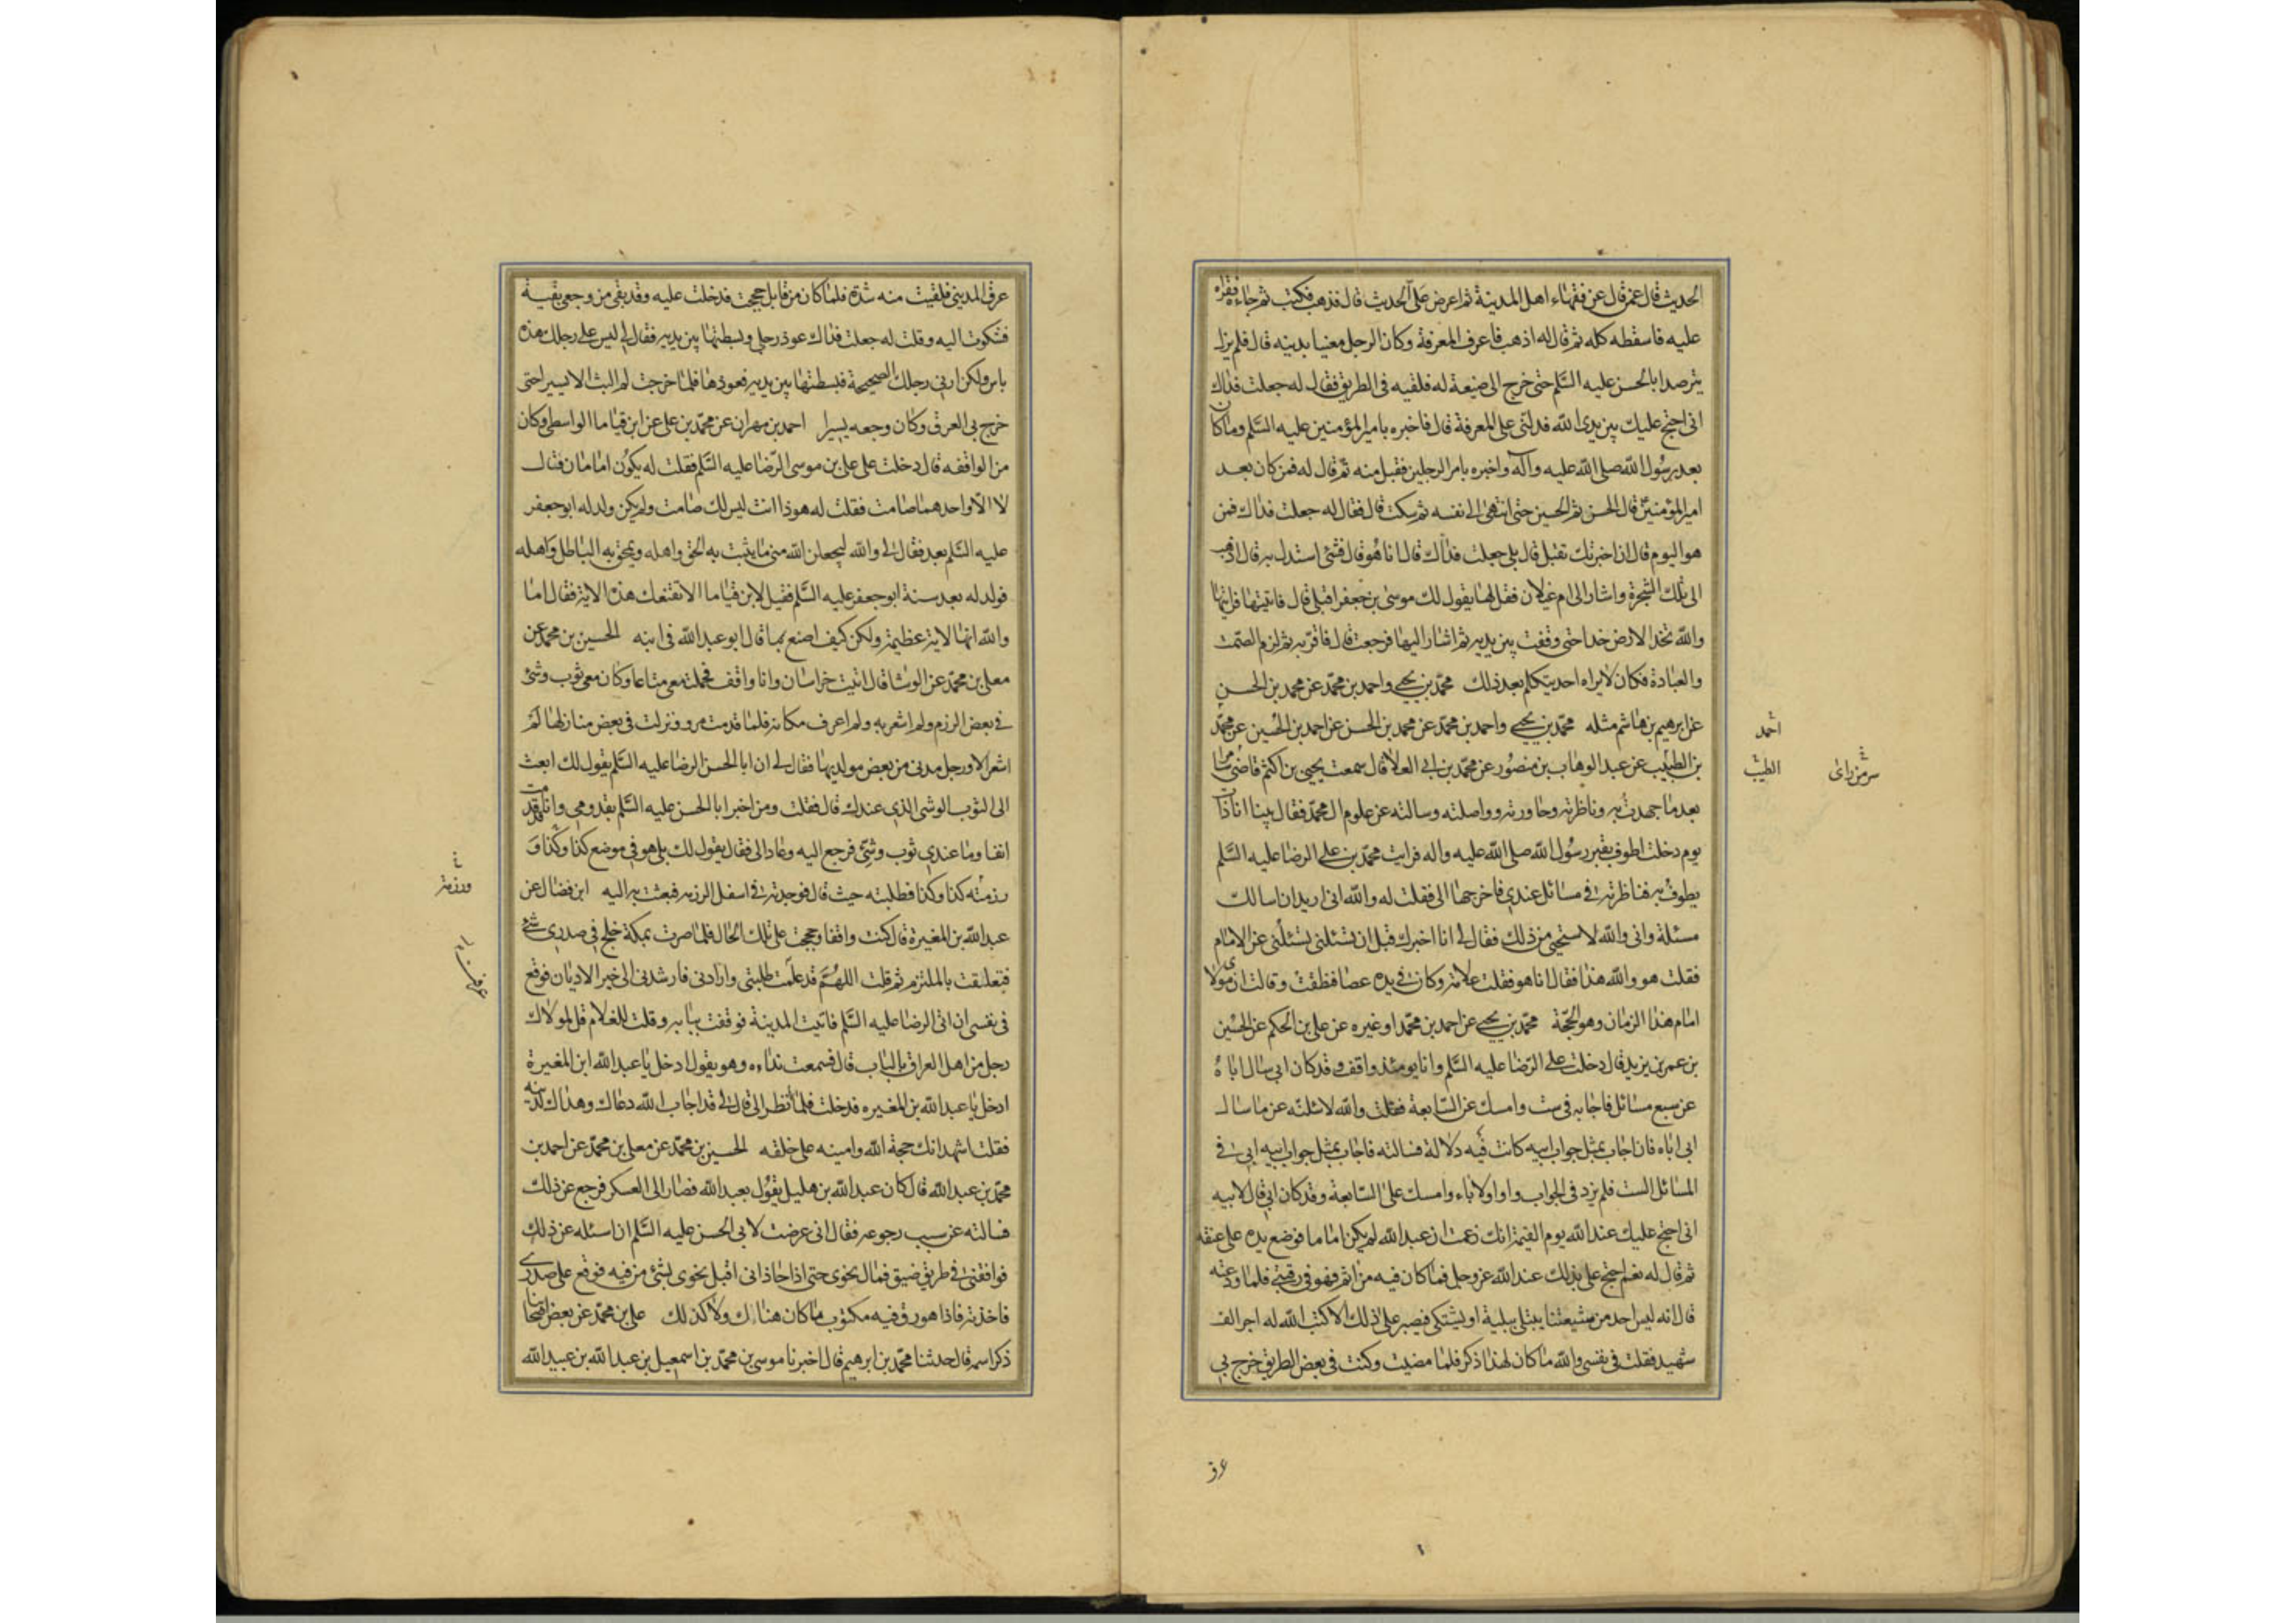 الحديث قال عمن قال عن فقهاء اهل المدينة ثم اعرض على الحديث قال فذهب فكتب ثم جاءه فقراه
عليه فاسقطه كله ثم قال له اذهب فاعرف المعرفة وكان الرجل معنيا بدينه قال فلم يزل
يترصد ابا الحسن عليه السلم حتى خرج الى ضيعة له فلقيه في الطريق فقال له جعلت فداك
انى احتج عليك بين يدى الله فدلنى على المعرفة قال فاخبره بامير المؤمنين عليه السلم وما كان
بعد رسول الله صلى الله عليه وآله واخبره بامر الرجلين فقبل منه ثم قال له فمن كان بعد
امير المؤمنين قال الحسن ثم الحسين حتى انتهى الى نفسه ثم سكت قال فقال له جعلت فداك فمن
هو اليوم قال ان اخبرتك تقبل قال بلى جعلت فداك قال انا هو قال فشئ استدل به قال اذهب
الى تلك الشجرة واشار الى ام غيلان فقل لها يقول لك موسى بن جعفر اقبلى قال فاتيتها فرايتها
والله تخد الارض خدا حتى وقفت بين يديه ثم اشار اليها فرجعت قال فاقر به ثم لزم الصمت
والعبادة فكان لا يراه احد يتكلم بعد ذلك محمد بن يحيى واحمد بن محمد عن محمد بن الحسن
عن ابرهيم بن هاشم مثله محمد بن يحيى واحمد بن محمد عن محمد بن الحسن عن احمد بن الحسين عن محمد
احمد
بن الطيب عن عبد الوهاب بن منصور عن محمد بن ابى العلا قال سمعت يحيى بن اكثم قاضى سامرا
الطيب
سر من راى
بعد ما جهدت به وناظرته وحاورته وواصلته وسالته عن علوم ال محمد فقال بينا انا ذات
يوم دخلت اطوف بقبر رسول الله صلى الله عليه واله فرايت محمد بن على الرضا عليه السلم
يطوف به فناظرته فى مسائل عندى فاخرجها الى فقلت له والله انى اريد ان اسالك
مسئلة وانى والله لاستحيى من ذلك فقال لى انا اخبرك قبل ان تسئلنى تسئلنى عن الامام
فقلت هو والله هذا فقال انا هو فقلت علامة وكان فى يده عصا فنطقت وقالت ان مولاى
امام هذا الزمان وهو الحجة محمد بن يحيى عن احمد بن محمد او غيره عن على بن الحكم عن الحسين
بن عمر بن يزيد قال دخلت على الرضا عليه السلم وانا يومئذ واقف وقد كان ابى سال اباه
عن سبع مسائل فاجابه فى ست وامسك عن السابعة فقلت والله لاسئلنه عن ما سال
ابى اباه فان اجاب بمثل جواب ابيه كانت فيه دلالة فسالته فاجاب بمثل جواب ابيه ابى فى
المسائل الست فلم يزد فى الجواب واوا ولا ياء وامسك على السابعة وقد كان ابى قال لابيه
انى احتج عليك عند الله يوم القيمة انك زعمت ان عبد الله لم يكن اماما فوضع يده على عنقه
ثم قال له نعم احتج على بذلك عند الله عز وجل فما كان فيه من اثم فهو فى رقبتى فلما ودعته
قال انه ليس احد من شيعتنا يبتلى ببلية او يشتكى فيصبر على ذلك الا كتب الله له اجر الف
شهيد فقلت فى نفسى والله ما كان لهذا ذكر فلما مضيت وكنت فى بعض الطريق خرج بى
عرق
عرق المدينى فلقيت منه شدة فلما كان من قابل حججت فدخلت عليه وقد بقى من وجعى بقية
فشكوت اليه وقلت له جعلت فداك عوذ رجلى وبسطتها بين يديه فقال لى ليس على رجلك هذه
باس ولكن ارنى رجلك الصحيحة فبسطتها بين يديه فعوذها فلما خرجت لم البث الا يسيرا حتى
خرج بى العرق وكان وجعه يسيرا احمد بن مهران عن محمد بن على عن ابن قياما الواسطى وكان
من الواقفه قال دخلت على على بن موسى الرضا عليه السلم فقلت له يكون امامان قال
لا الا واحدهما صامت فقلت له هوذا انت ليس لك صامت ولم يكن ولد له ابو جعفر
عليه السلم بعد فقال لى والله ليجعلن الله منى ما يثبت به الحق واهله ويمحق به الباطل واهله
فولد له بعد سنة ابو جعفر عليه السلم فقيل لابن قياما الا تقنعك هذه الاية فقال اما
والله انها لاية عظيمة ولكن كيف اصنع بما قال ابو عبد الله فى ابنه الحسين بن محمد عن
معلى بن محمد عن الوشا قال اتيت خراسان وانا واقف فحملت معى متاعا وكان معى ثوب وشى
فى بعض الرزم ولم اشعر به ولم اعرف مكانه فلما قدمت مرو ونزلت فى بعض منازلها لم
اشعر الا ورجل مدنى من بعض مولديها فقال لى ان ابا الحسن الرضا عليه السلم يقول لك ابعث
الى الثوب الوشى الذى عندك قال فقلت ومن اخبر ابا الحسن عليه السلم بقدومى وانا قدمت
انفا وما عندى ثوب وشى فرجع اليه وعاد الى فقال يقول لك بلى هو فى موضع كذا وكذا و
رزمته كذا وكذا فطلبته حيث قال فوجدته فى اسفل الرزمه فبعثت به اليه ابن فضال عن
ورزمته
عبد الله بن المغيرة قال كنت واقفا وحججت على تلك الحال فلما صرت بمكة خلج فى صدرى شئ
فتعلقت بالملتزم ثم قلت اللهم قد علمت طلبتى وارادتى فارشدنى الى خير الاديان فوقع
فى نفسى ان اتى الرضا عليه السلم فاتيت المدينة فوقفت ببابه وقلت للغلام قل لمولاك
رجل من اهل العراق بالباب قال فسمعت نداءه وهو يقول ادخل يا عبد الله ابن المغيرة
ادخل يا عبد الله بن المغيره فدخلت فلما نظر الى قال لى قد اجاب الله دعاك وهداك لدينه
فقلت اشهد انك حجة الله وامينه على خلقه الحسين بن محمد عن معلى بن محمد عن احمد بن
محمد بن عبد الله قال كان عبد الله بن هليل يقول بعبد الله فصار الى العسكر فرجع عن ذلك
فسالته عن سبب رجوعه فقال انى عرضت لابى الحسن عليه السلم ان اسئله عن ذلك
فوافقنى فى طريق ضيق فمال نحوى حتى اذا حاذانى اقبل نحوى بشئ من فيه فوقع على صدرى
فاخذته فاذا هو رق فيه مكتوب ما كان هنالك ولا كذلك على بن محمد عن بعض اصحابنا
ذكر اسمه قال حدثنا محمد بن ابرهيم قال اخبرنا موسى بن محمد بن اسمعيل بن عبد الله بن عبيد الله